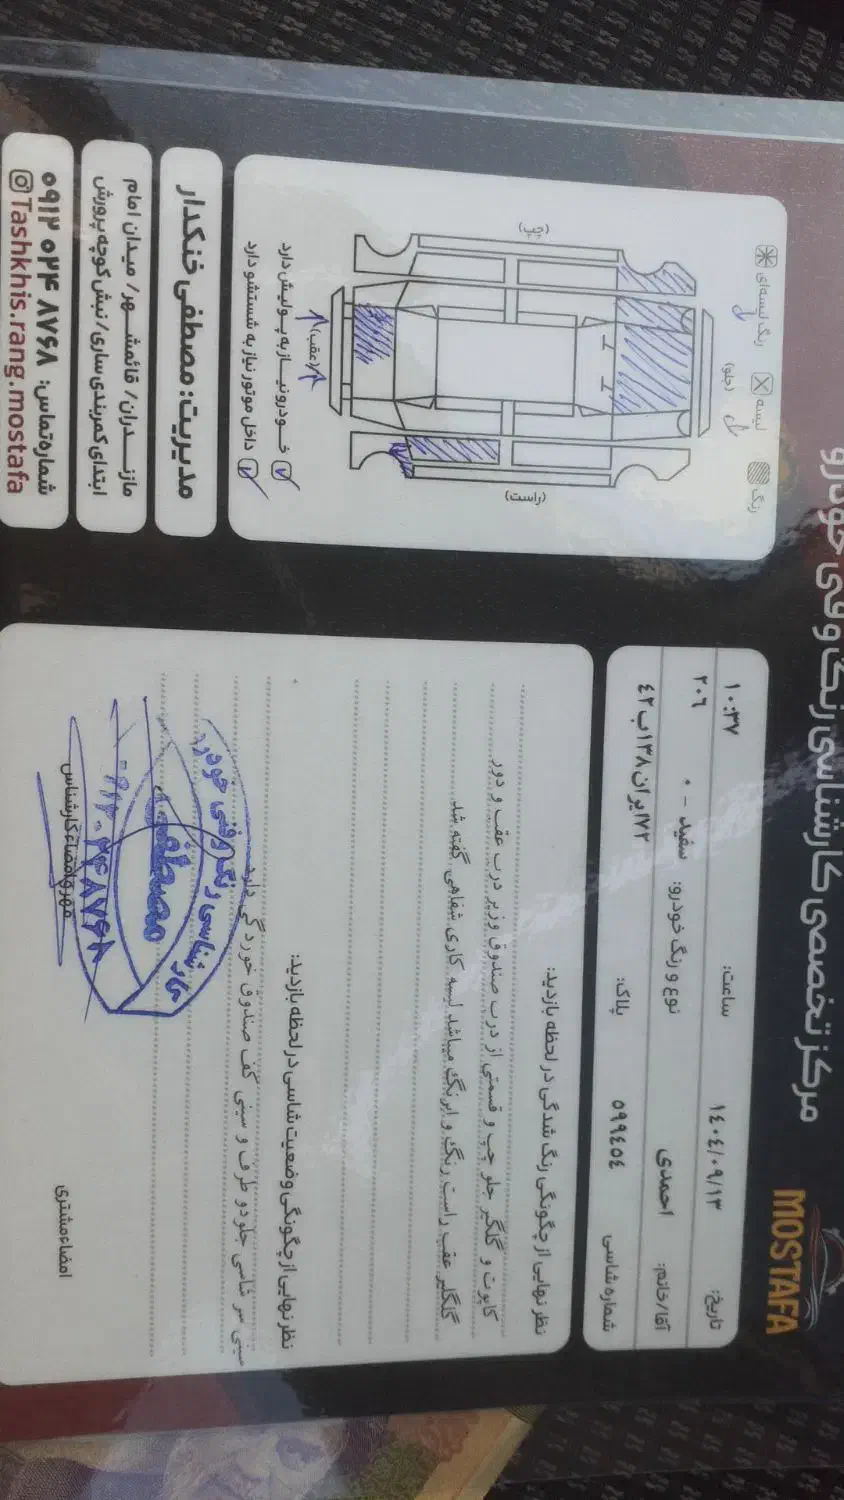 مرکز تخصصی کارشناسی رنگ و فنی خودرو
MOSTAFA
تاریخ: ۱۴۰۴/۰۹/۱۳
ساعت: ۱۰:۳۷
آقا/خانم: احمدی
نوع و رنگ خودرو: سفید - ۰
۲۰۶
شماره شاسی ۵۹۹٤٥٤
پلاک: ۷۲ایران۱۳۸ب۴۲
نظر نهایی از چگونگی رنگ شدگی در لحظه بازدید:
کاپوت و گلگیر جلو چپ و قسمتی از درب صندوق وزیر درب عقب و دور
گلگلیر عقب راست رنگ و ابرنگ میباشد لیسه کاری شفاهی گفته شد
نظر نهایی از چگونگی وضعیت شاسی در لحظه بازدید:
سینی سر شاسی جلودو طرف و سینی کف صندوق خوردگی دارد
امضاء مشتری
مهر و امضاء کارشناس
کارشناسی رنگ و فنی خودرو
مصطفی
رنگ
لیسه
رنگ لیسه‌ای
(جلو)
(چپ)
(راست)
(عقب)
خودرو نیاز به پولیش دارد
داخل موتور نیاز به شستشو دارد
مدیریت: مصطفی خنکدار
مازندران/ قائمشهر/ میدان امام
ابتدای کمربندی ساری/ نبش کوچه پرورش
شماره تماس: ۰۹۱۲ ۰۲۴ ۸۷۶۸
Tashkhis.rang.mostafa